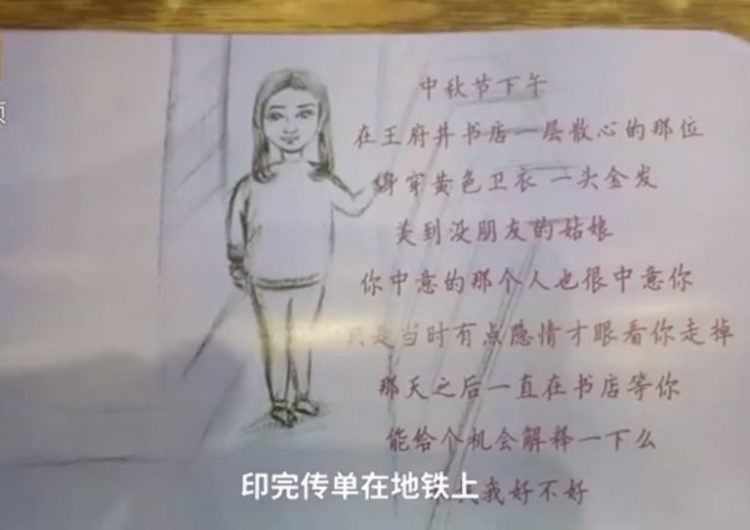 页
中秋节下午
在王府井书店一层散心的那位
身穿黄色卫衣 一头金发
美到没朋友的姑娘
你中意的那个人也很中意你
只是当时有点隐情才眼看你走掉
那天之后一直在书店等你
能给个机会解释一下么
我好不好
印完传单在地铁上